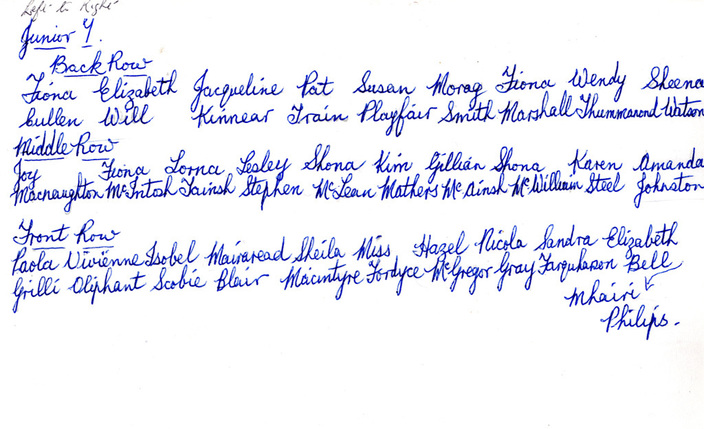 Left to Right
Junior 7.
Back Row
Fiona Elizabeth Jacqueline Pat Susan Morag Fiona Wendy Sheena
Cullen Will Kinnear Train Playfair Smith Marshall Thummanond Watson
Middle Row
Joy Fiona Lorna Lesley Shona Kim Gillian Shona Karen Amanda
Macnaughton McIntosh Tainsh Stephen McLean Mathers McAinsh McWilliam Steel Johnston
Front Row
Paola Vivienne Isobel Mairaread Sheila Miss Hazel Nicola Sandra Elizabeth
Grilli Oliphant Scobie Blair Macintyre Fordyce McGregor Gray Farquharson Bell
Mhairi
Philips.